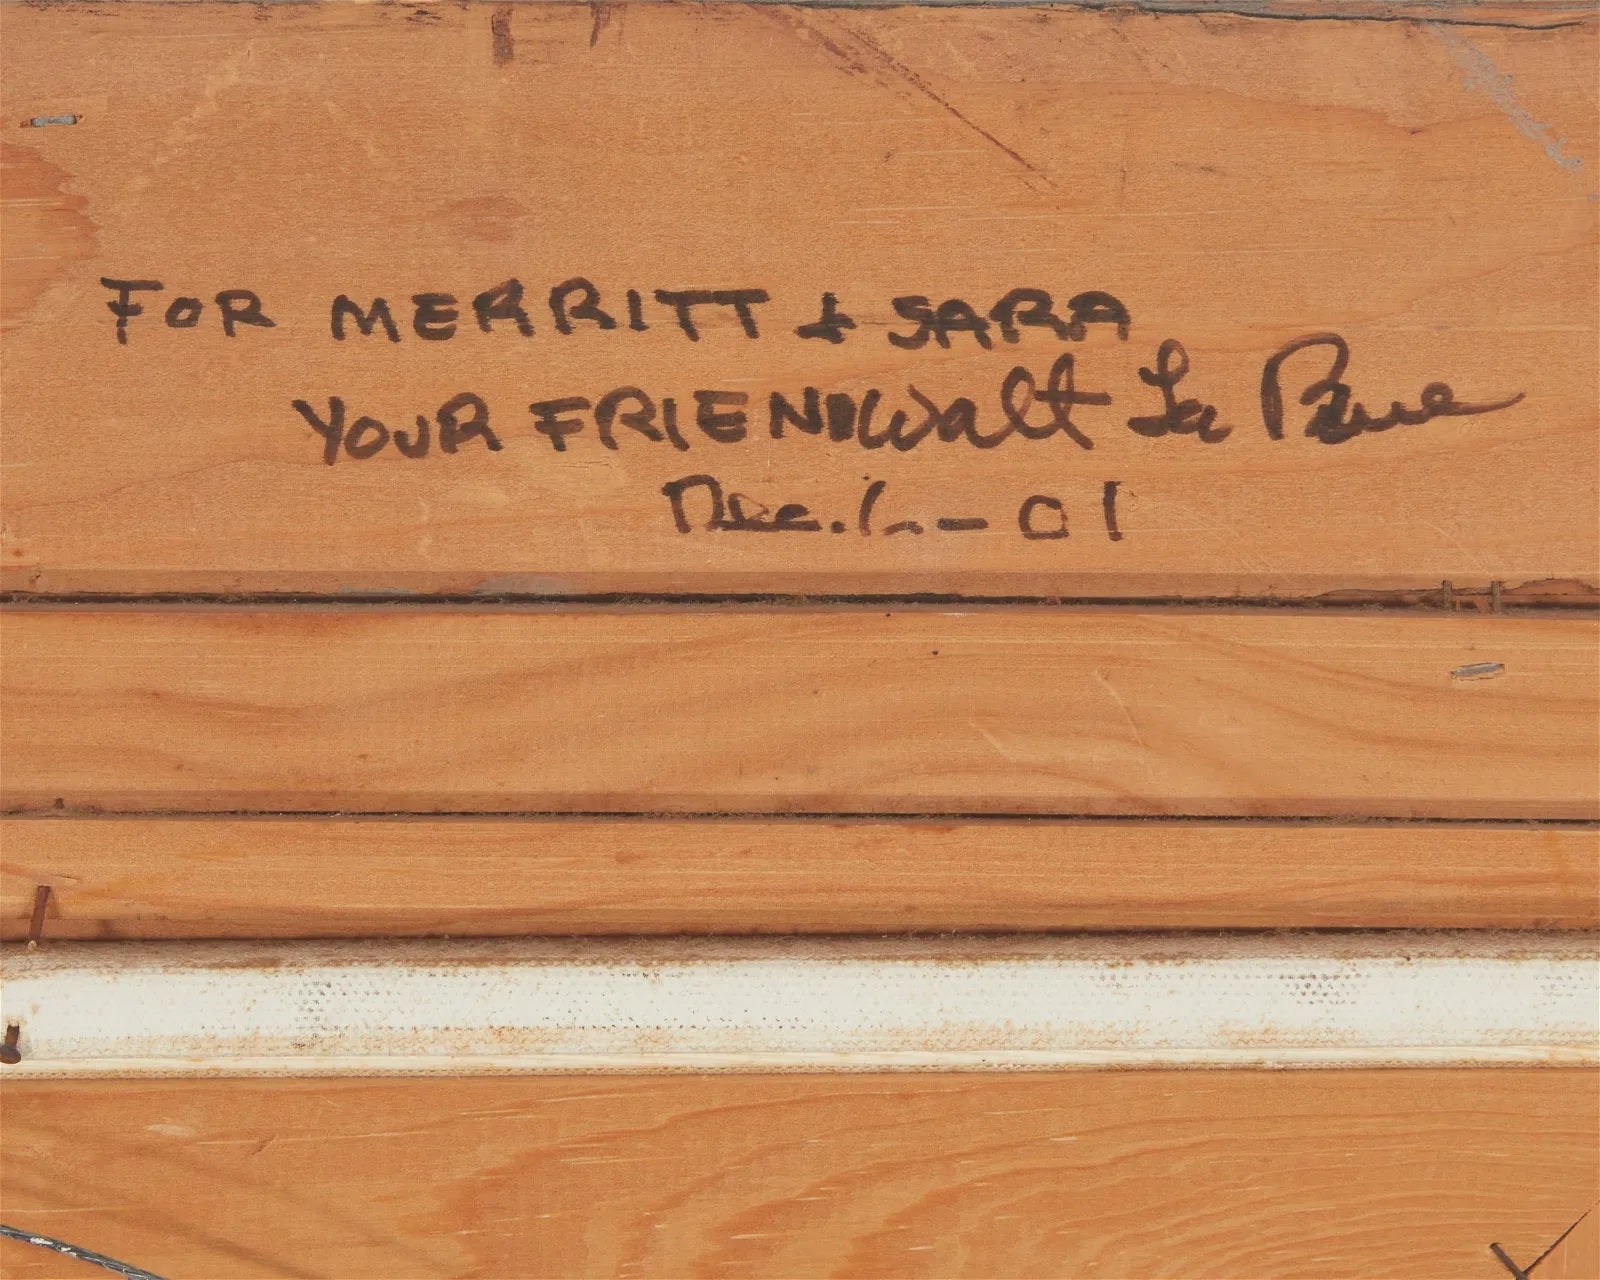 FOR MERRITT & SARA
YOUR FRIEND Walt La Baue
Dec. 6 - 01